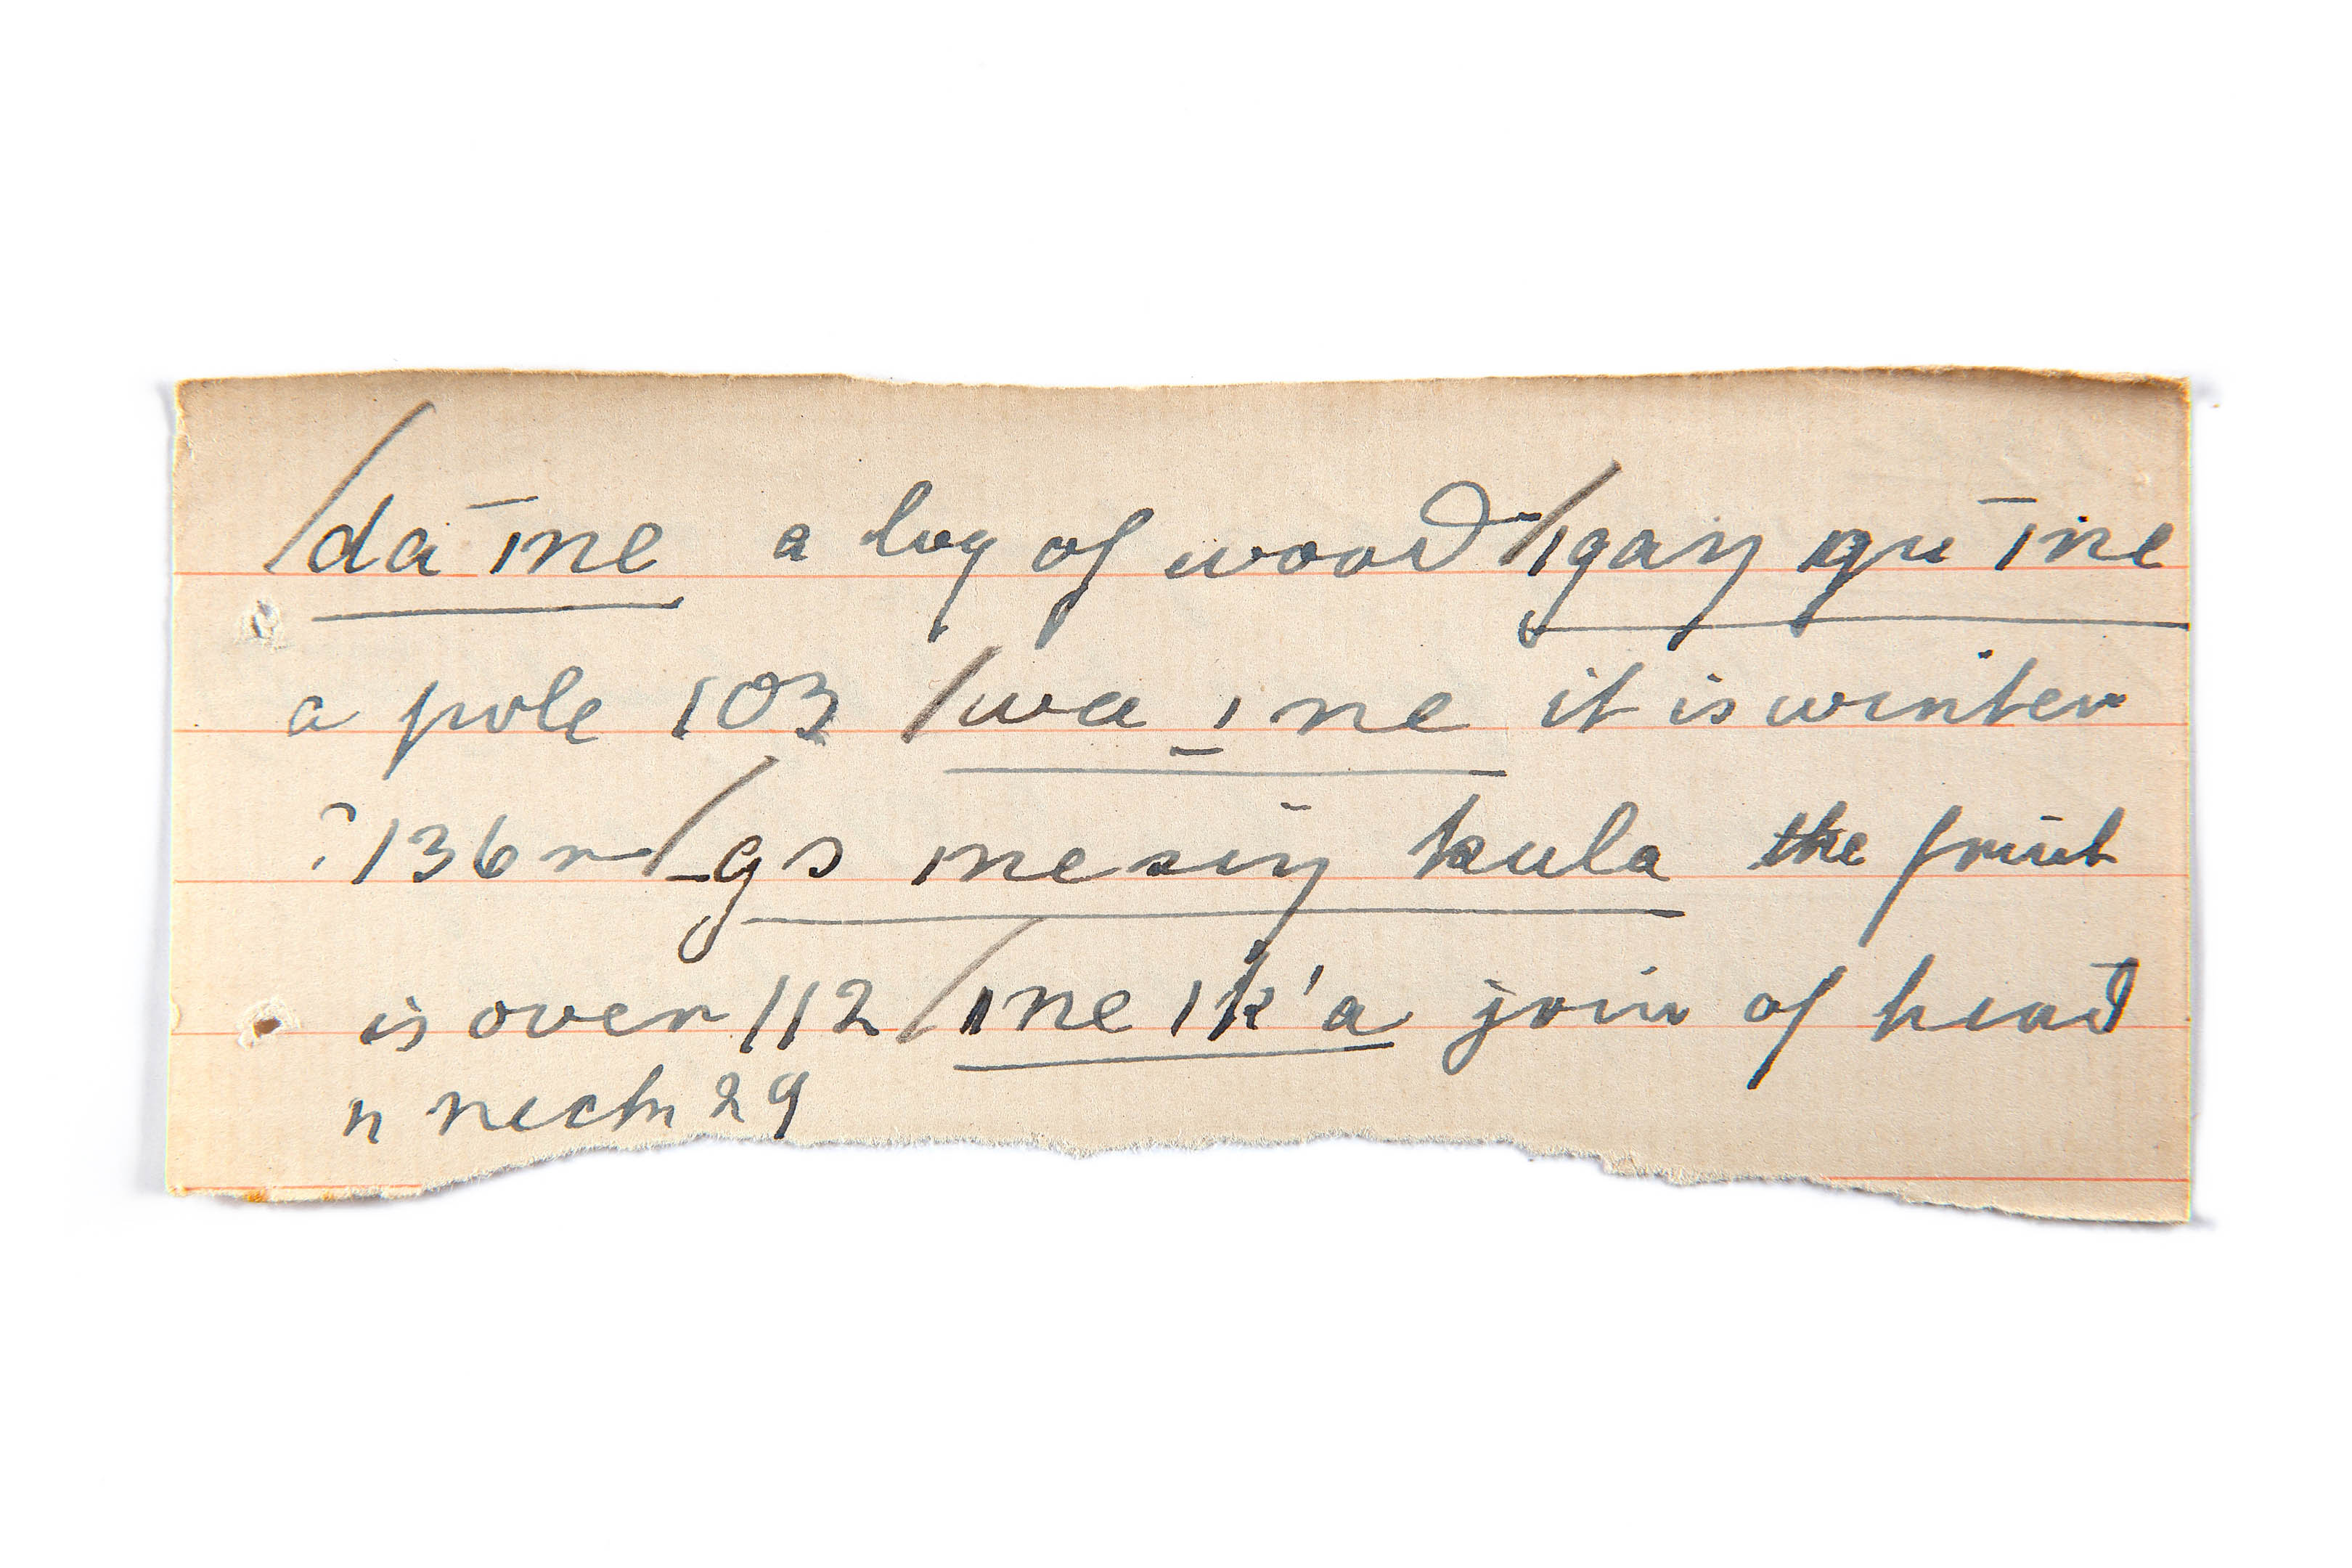 /da ̄ıne a log of wood /ıgaŋ gu ̄ıne
a pole 103 /wa _ ı ne it is winter
? 136 r /_gs ınesiŋ kula the fruit
is over 112 /ıne ık'a join of head
n neck 29